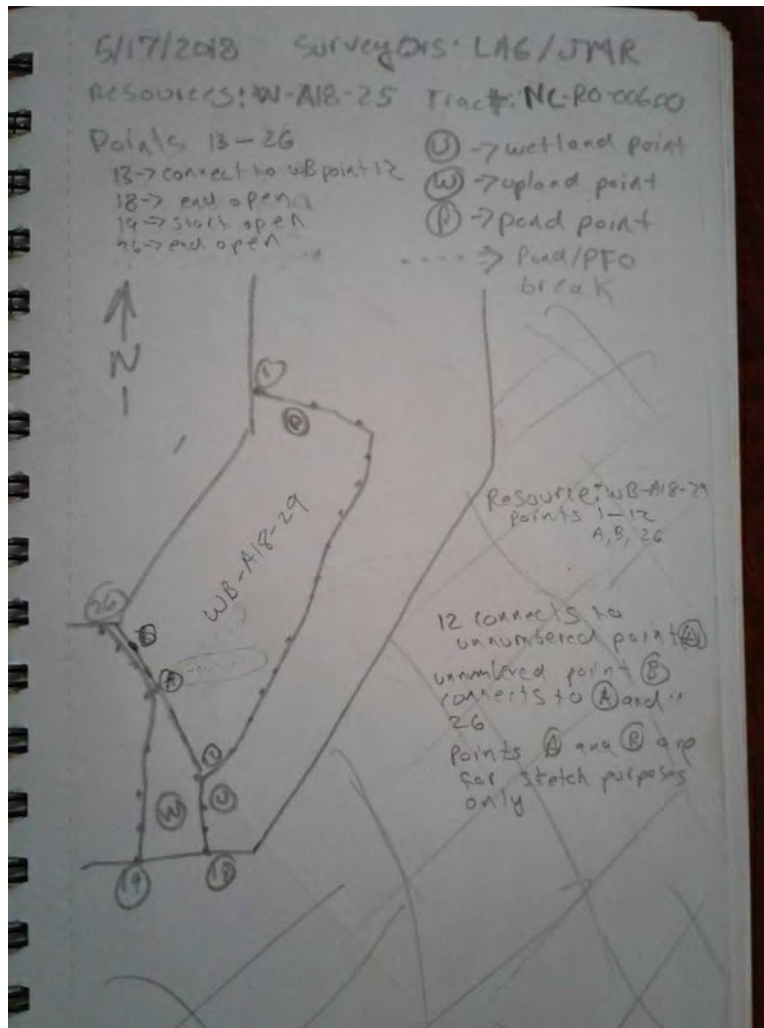 5/17/2018 Surveyors: LAG/JMR
Resources: W-A18-25 Tract#: NC-RO-006.00
Points 13-26
13-> connect to WB point 12
18-> end open
19-> start open
26-> end open
U -> wetland point
W -> upland point
P -> pond point
----> Pond/PFO
break
N
1
P
WB-A18-29
26
B
A
W
U
19
18
Resource: WB-A18-29
points 1-12
A, B, 26
12 connects to
unnumbered point A
unnumbered point B
connects to A and
26
Points A and B are
for sketch purposes
only